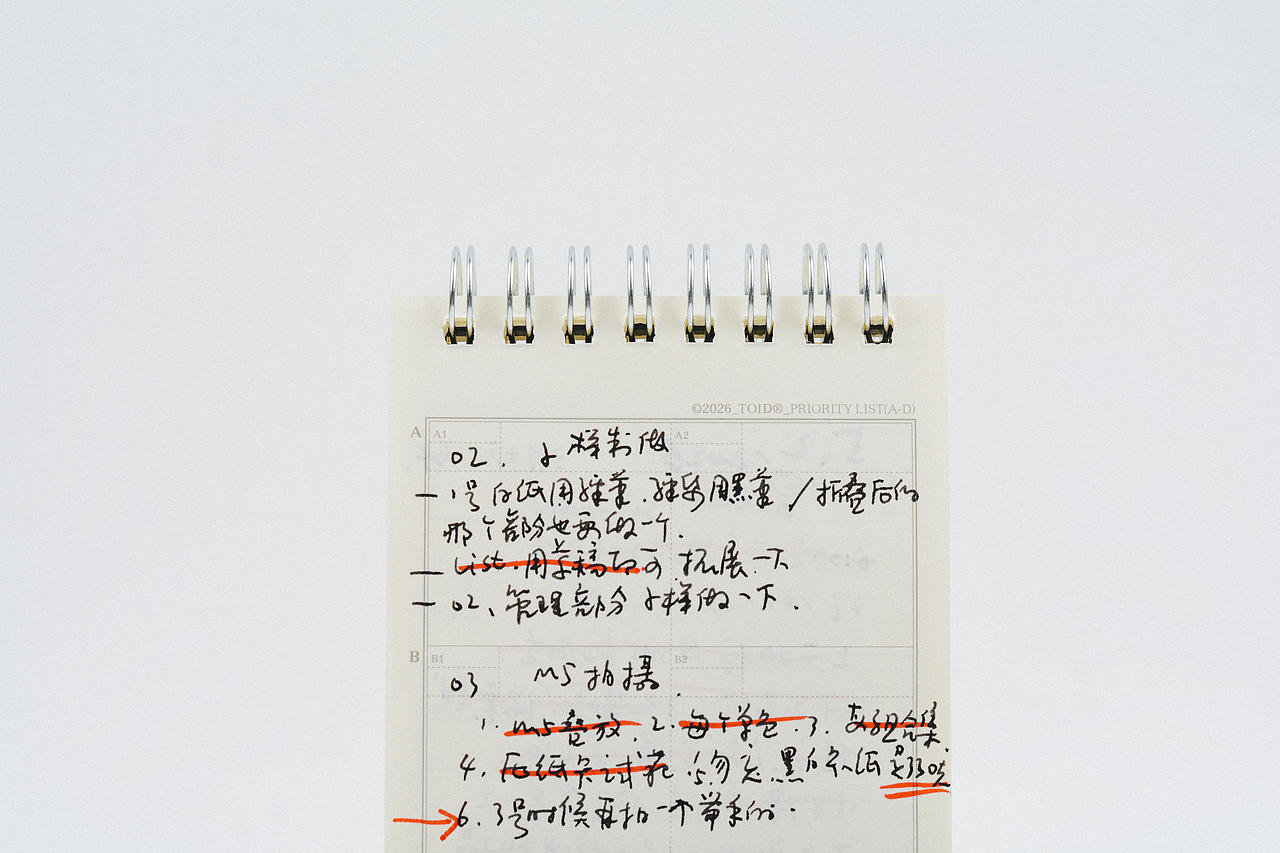 ©2026_TOID®_PRIORITY LIST(A-D)
A A1 A2
02. 小样制做
— 1号白纸用 笔. 用黑笔 / 折叠后的
那个部份也要做一个.
— List. 用草稿 可 拓展一下
— 02、管理部分小样做一下.
B B1 B2
03 M5 拍摄.
1. M5叠放. 2. 每个单色. 3. 组合集
4. 纸 试 . 5勿忘黑白 纸
6. 3号时候再拍一个带 的.